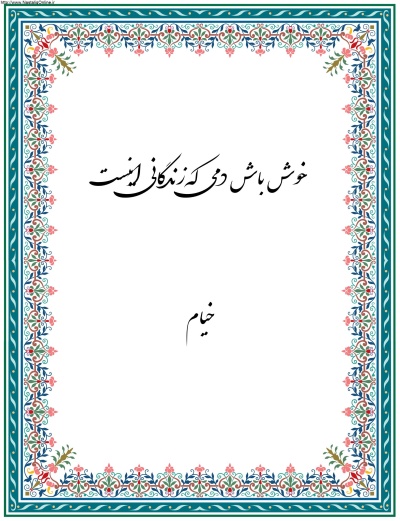 http://www.NastaliqOnline.ir
خوش باش دمی که زندگانی اینست
خیام